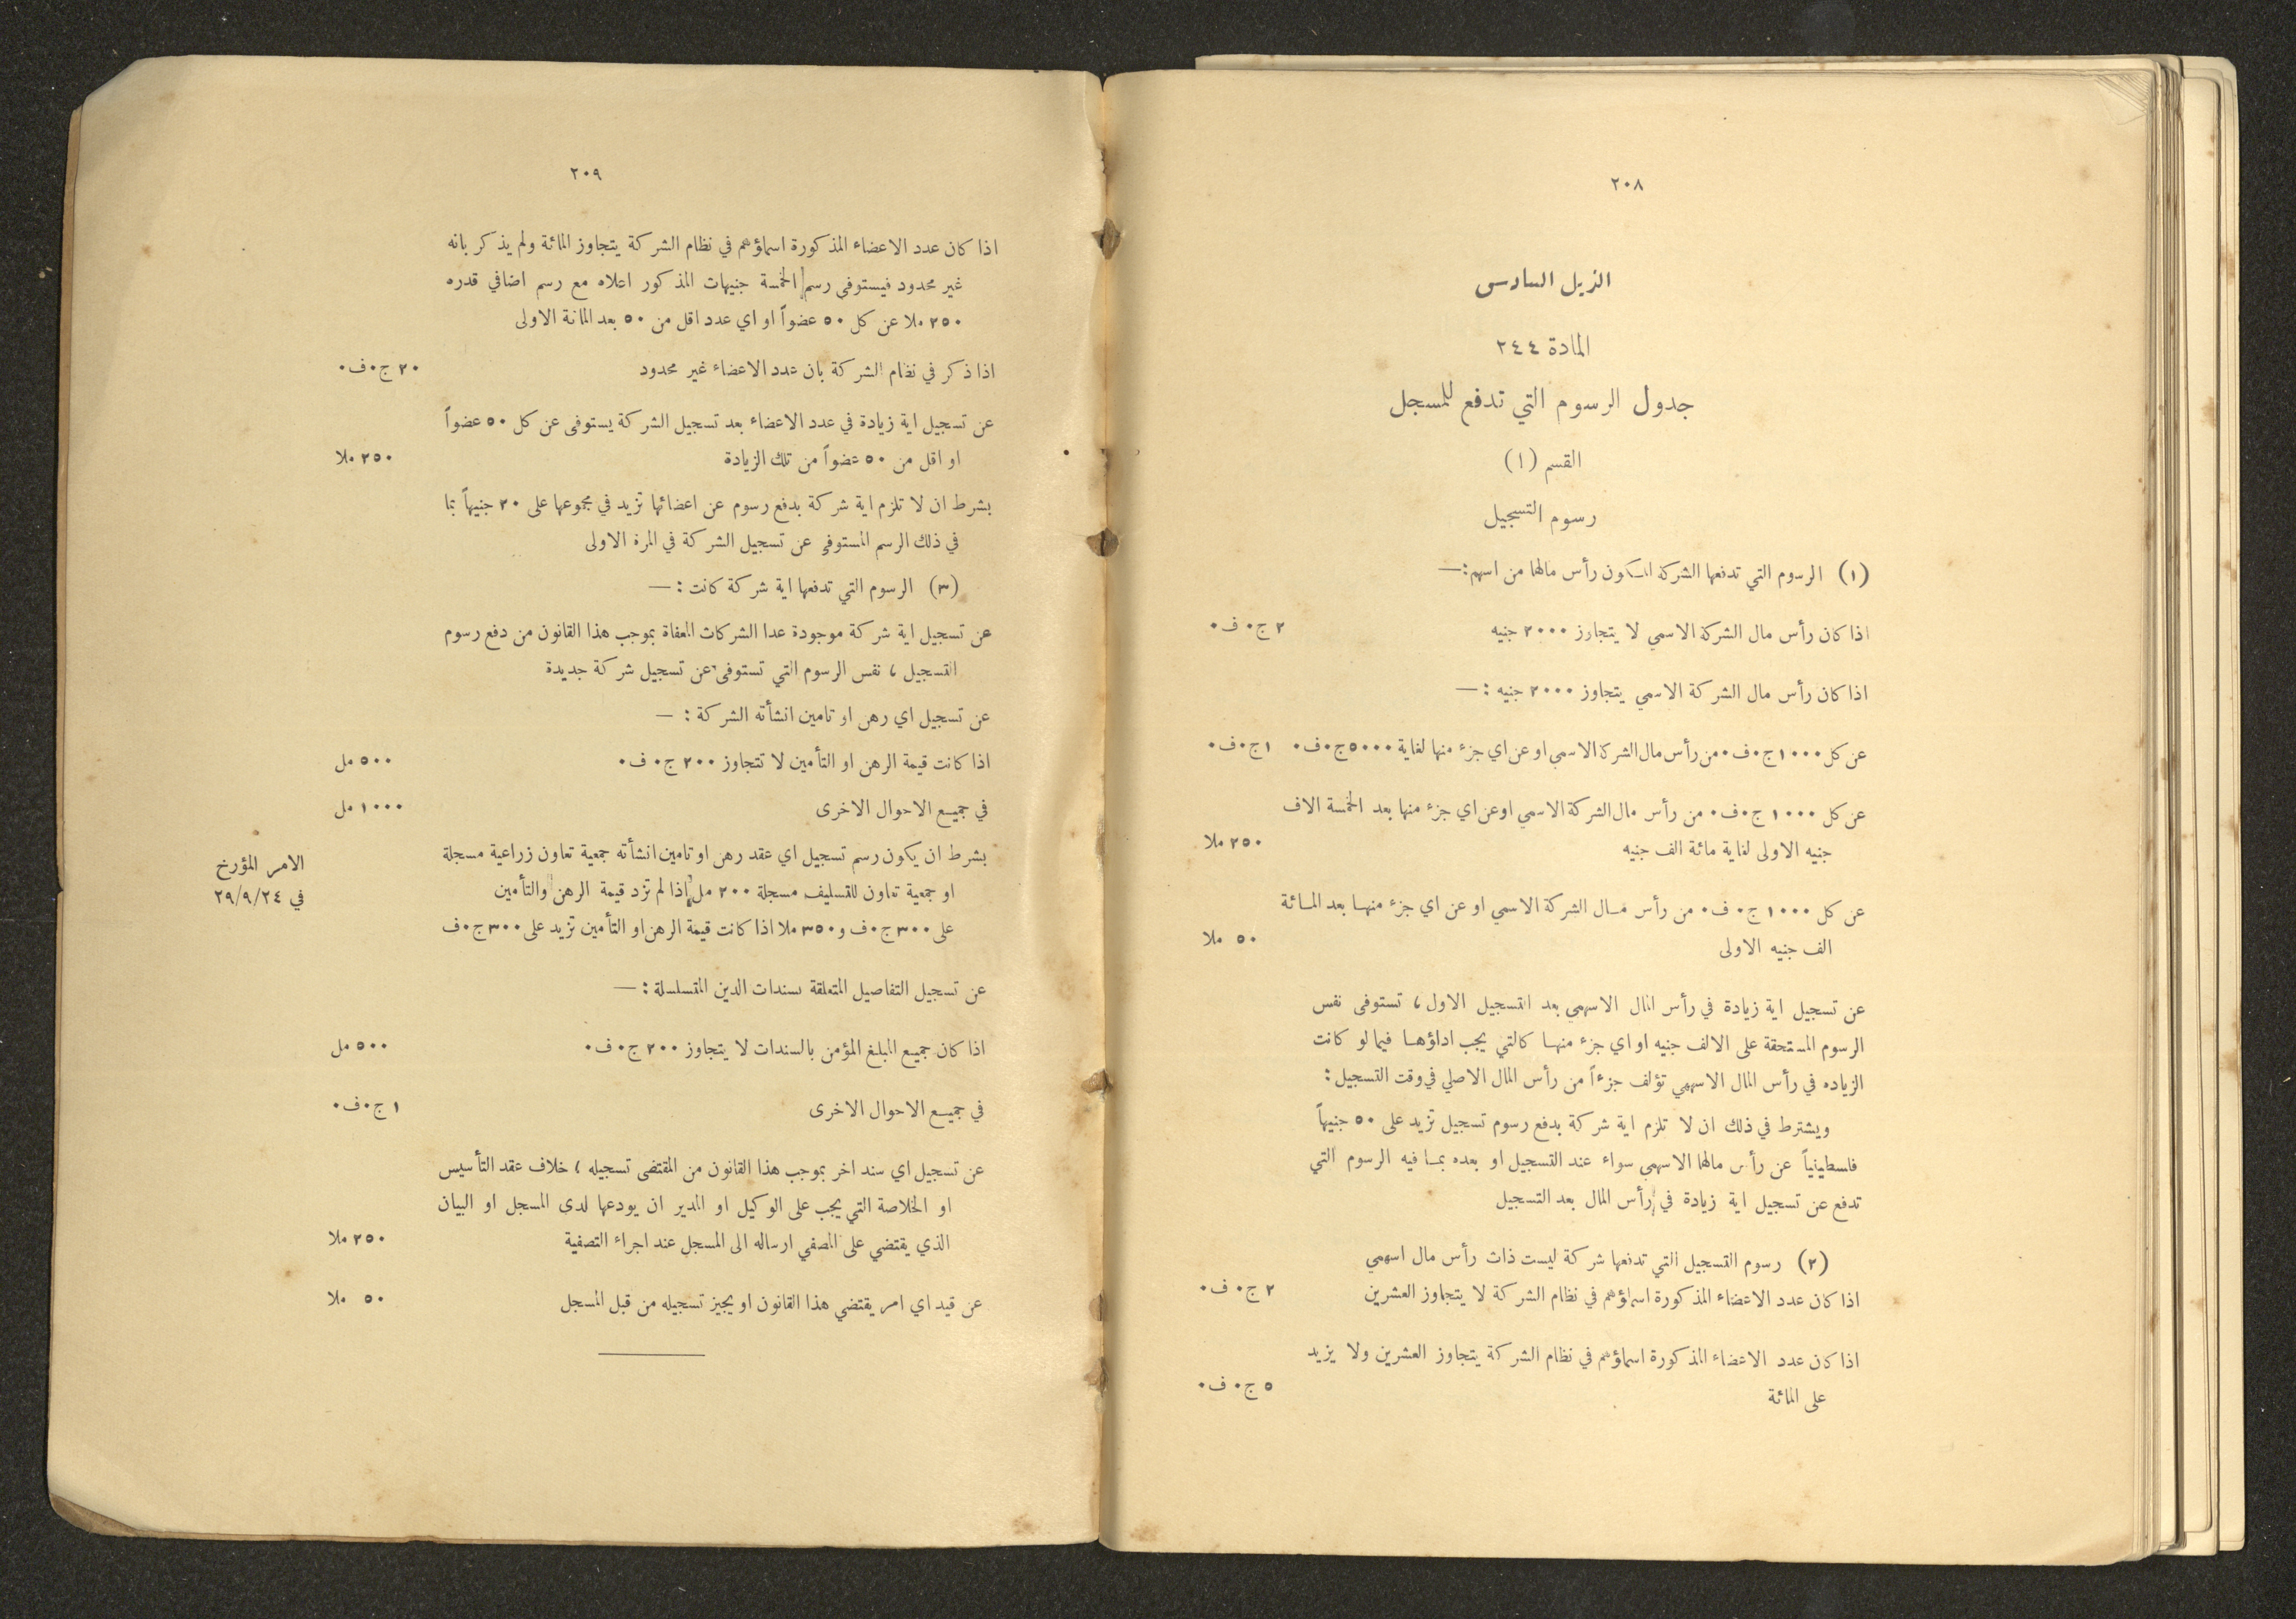 ٢٠٨
الذيل السادس
المادة ٢٤٤
جدول الرسوم التي تدفع للمسجل
القسم (١)
رسوم التسجيل
(١) الرسوم التي تدفعها الشركة المكون رأس مالها من اسهم :—
اذا كان رأس مال الشركة الاسمي لا يتجاوز ٢٠٠٠ جنيه ٢ ج٠ ف٠
اذا كان رأس مال الشركة الاسمي يتجاوز ٢٠٠٠ جنيه : —
عن كل ١٠٠٠ ج٠ف٠ من رأس مال الشركة الاسمي او عن اي جزء منها لغاية ٥٠٠٠ ج٠ف٠ ١ ج٠ف٠
عن كل ١٠٠٠ ج٠ف٠ من رأس مال الشركة الاسمي او عن اي جزء منها بعد الخمسة الاف
جنيه الاولى لغاية مائة الف جنيه ٢٥٠ ملا
عن كل ١٠٠٠ ج٠ ف٠ من رأس مال الشركة الاسمي او عن اي جزء منها بعد المائة
الف جنيه الاولى ٥٠ ملا
عن تسجيل اية زيادة في رأس المال الاسهمي بعد التسجيل الاول ، تستوفى نفس
الرسوم المستحقة على الالف جنيه او اي جزء منها كالتي يجب اداؤها فيما لو كانت
الزياده في رأس المال الاسهمي تؤلف جزءاً من رأس المال الاصلي في وقت التسجيل :
ويشترط في ذلك ان لا تلزم اية شركة بدفع رسوم تسجيل تزيد على ٥٠ جنيهاً
فلسطينياً عن رأس مالها الاسهمي سواء عند التسجيل او بعده بما فيه الرسوم التي
تدفع عن تسجيل اية زيادة في رأس المال بعد التسجيل
(٢) رسوم التسجيل التي تدفعها شركة ليست ذات رأس مال اسهمي
اذا كان عدد الاعضاء المذكورة اسماؤهم في نظام الشركة لا يتجاوز العشرين ٢ ج٠ ف٠
اذا كان عدد الاعضاء المذكورة اسماؤهم في نظام الشركة يتجاوز العشرين ولا يزيد
على المائة ٥ ج٠ ف٠
٢٠٩
اذا كان عدد الاعضاء المذكورة اسماؤهم في نظام الشركة يتجاوز المائة ولم يذكر بانه
غير محدود فيستوفى رسم الخمسة جنيهات المذكور اعلاه مع رسم اضافي قدره
٢٥٠ ملا عن كل ٥٠ عضواً او اي عدد اقل من ٥٠ بعد المائة الاولى
اذا ذكر في نظام الشركة بان عدد الاعضاء غير محدود ٢٠ ج٠ف٠
عن تسجيل اية زيادة في عدد الاعضاء بعد تسجيل الشركة يستوفى عن كل ٥٠ عضواً
او اقل من ٥٠ عضواً من تلك الزيادة ٢٥٠ ملا
بشرط ان لا تلزم اية شركة بدفع رسوم عن اعضائها تزيد في مجموعها على ٢٠ جنيهاً بما
في ذلك الرسم المستوفى عن تسجيل الشركة في المرة الاولى
(٣) الرسوم التي تدفعها اية شركة كانت : —
عن تسجيل اية شركة موجودة عدا الشركات المعفاة بموجب هذا القانون من دفع رسوم
التسجيل ، نفس الرسوم التي تستوفى عن تسجيل شركة جديدة
عن تسجيل اي رهن او تامين انشأته الشركة : —
اذا كانت قيمة الرهن او التأمين لا تتجاوز ٢٠٠ ج٠ ف٠ ٥٠٠ مل
في جميع الاحوال الاخرى ١٠٠٠ مل
بشرط ان يكون رسم تسجيل اي عقد رهن او تامين انشأته جمعية تعاون زراعية مسجلة
او جمعية تعاون للتسليف مسجلة ٢٠٠ مل اذا لم تزد قيمة الرهن والتأمين
على ٣٠٠ ج٠ف و ٣٥٠ ملا اذا كانت قيمة الرهن او التأمين تزيد على ٣٠٠ ج٠ف
الامر المؤرخ
في ٢٩/٩/٢٤
عن تسجيل التفاصيل المتعلقة بسندات الدين المتسلسلة : —
اذا كان جميع المبلغ المؤمن بالسندات لا يتجاوز ٢٠٠ ج٠ ف٠ ٥٠٠ مل
في جميع الاحوال الاخرى ١ ج٠ف٠
عن تسجيل اي سند اخر بموجب هذا القانون من المقتضى تسجيله ، خلاف عقد التأسيس
او الخلاصة التي يجب على الوكيل او المدير ان يودعها لدى المسجل او البيان
الذي يقتضي على المصفي ارساله الى المسجل عند اجراء التصفية ٢٥٠ ملا
عن قيد اي امر يقتضي هذا القانون او يجيز تسجيله من قبل المسجل ٥٠ ملا